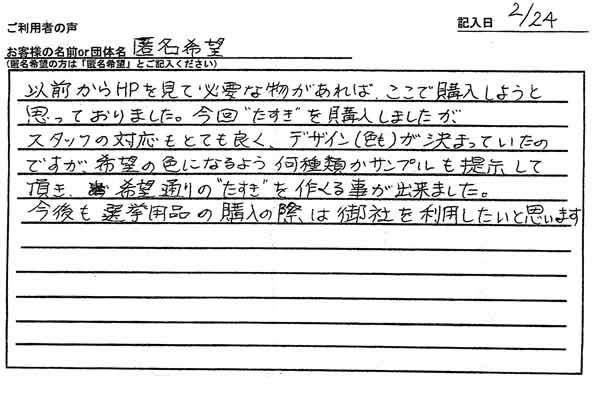 ご利用者の声
記入日 2/24
お客様の名前or団体名 匿名希望
(匿名希望の方は「匿名希望」とご記入ください)
以前からHPを見て必要な物があれば、ここで購入しようと
思っておりました。今回"たすき"を購入しましたが
スタッフの対応もとても良く、デザイン(色も)が決まっていたの
ですが、希望の色になるよう何種類かサンプルも提示して
頂き、希望通りの"たすき"を作くる事が出来ました。
今後も選挙用品の購入の際は御社を利用したいと思います